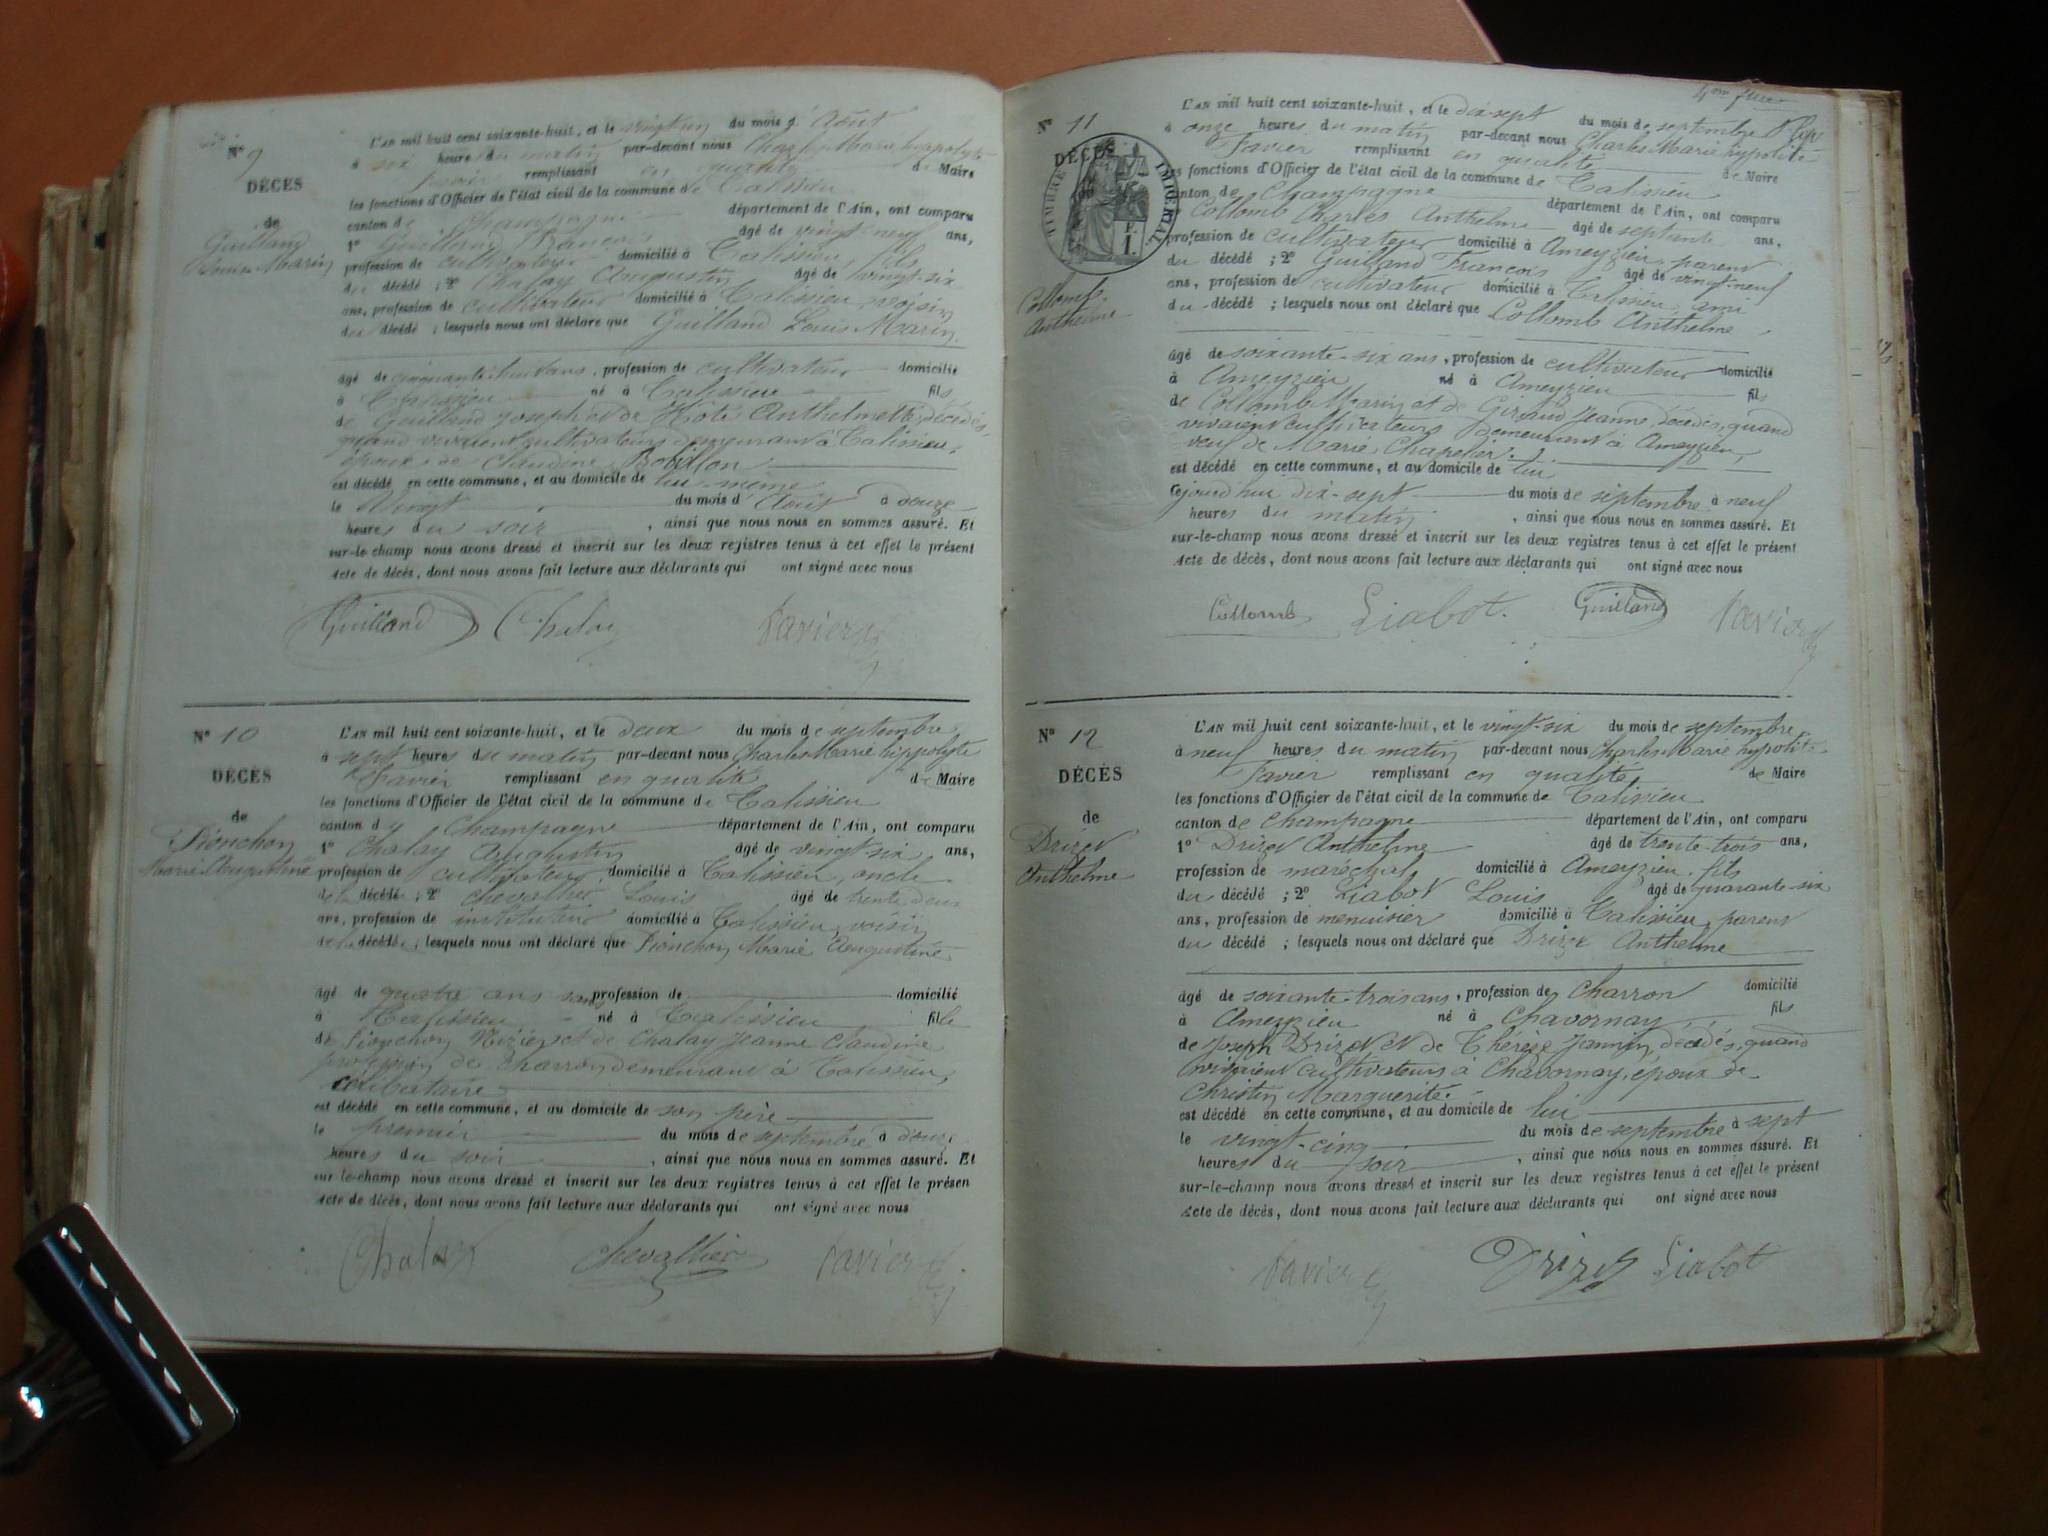 N° 9
DÉCÈS
de
Guilland
Louis Marin
L'AN mil huit cent soixante-huit, et le vingt-un du mois d' Août
à six heures du matin par-devant nous Charles Marie hyppolyte
Favier remplissant en qualité de Maire
les fonctions d'Officier de l'état civil de la commune de Talissieu
canton de Champagne département de l'Ain, ont comparu
1° Guilland François âgé de vingt neuf ans,
profession de cultivateur domicilié à Talissieu, fils
du décédé ; 2° Chalay Augustin âgé de vingt-six
ans, profession de cultivateur domicilié à Talissieu, voisin
du décédé ; lesquels nous ont déclaré que Guilland Louis Marin
âgé de cinquante-huit ans, profession de cultivateur domicilié
à Talissieu né à Talissieu fils
de Guilland Joseph et de Hôte Anthelmette, décédés,
quand vivaient cultivateurs demeurant à Talissieu,
époux de Claudine Bobillon
est décédé en cette commune, et au domicile de lui-même
le Vingt du mois d' Août à douze
heures du soir, ainsi que nous nous en sommes assuré. Et
sur-le-champ nous avons dressé et inscrit sur les deux registres tenus à cet effet le présent
Acte de décès, dont nous avons fait lecture aux déclarants qui ont signé avec nous
Guilland Chalay Favier
N° 10
DÉCÈS
de
Pionchon
Marie Augustine
L'AN mil huit cent soixante-huit, et le deux du mois de septembre
à sept heures du matin par-devant nous Charles Marie hippolyte
Favier remplissant en qualité de Maire
les fonctions d'Officier de l'état civil de la commune de Talissieu
canton de Champagne département de l'Ain, ont comparu
1° Chalay Augustin âgé de vingt-six ans,
profession de cultivateur domicilié à Talissieu, oncle
de la décédé ; 2° Chevallier Louis âgé de trente deux
ans, profession de instituteur domicilié à Talissieu, voisin
de la décédée ; lesquels nous ont déclaré que Pionchon Marie Augustine
âgé de quatre ans sans profession de domicilié
à Talissieu né à Talissieu fille
de Pionchon Nizier et de Chalay Jeanne Claudine
profession de charron demeurant à Talissieu,
célibataire
est décédé en cette commune, et au domicile de son père
le premier du mois de septembre à douze
heures du soir, ainsi que nous nous en sommes assuré. Et
sur-le-champ nous avons dressé et inscrit sur les deux registres tenus à cet effet le présen
Acte de décès, dont nous avons fait lecture aux déclarants qui ont signé avec nous
Chalay Chevallier Favier
4me
N° 11
DÉCÈS
TIMBRE IMPÉRIAL
1 F.
Collomb
Anthelme
L'AN mil huit cent soixante-huit, et le dix-sept du mois de septembre
à onze heures du matin par-devant nous Charles Marie hypolite
Favier remplissant en qualité de Maire
les fonctions d'Officier de l'état civil de la commune de Talissieu
canton de Champagne département de l'Ain, ont comparu
1° Collomb Charles Anthelme âgé de septante ans,
profession de cultivateur domicilié à Ameyzieu, parent
du décédé ; 2° Guilland François âgé de vingt-neuf
ans, profession de cultivateur domicilié à Talissieu, ami
du décédé ; lesquels nous ont déclaré que Collomb Anthelme
âgé de soixante-six ans, profession de cultivateur domicilié
à Ameyzieu né à Ameyzieu fils
de Collomb Marin et de Giraud Jeanne, décédés, quand
vivaient cultivateurs demeurant à Ameyzieu,
veuf de Marie Chapelier.
est décédé en cette commune, et au domicile de lui
ajourd'hui dix-sept du mois de septembre à neuf
heures du matin, ainsi que nous nous en sommes assuré. Et
sur-le-champ nous avons dressé et inscrit sur les deux registres tenus à cet effet le présent
Acte de décès, dont nous avons fait lecture aux déclarants qui ont signé avec nous
Collomb Liabot. Guilland Favier
N° 12
DÉCÈS
de
Drizet
Anthelme
L'AN mil huit cent soixante-huit, et le vingt-six du mois de septembre
à neuf heures du matin par-devant nous Charles Marie hypolite
Favier remplissant en qualité de Maire
les fonctions d'Officier de l'état civil de la commune de Talissieu
canton de Champagne département de l'Ain, ont comparu
1° Drizet Anthelme âgé de trente-trois ans,
profession de maréchal domicilié à Ameyzieu, fils
du décédé ; 2° Liabot Louis âgé de quarante-six
ans, profession de menuisier domicilié à Talissieu, parent
du décédé ; lesquels nous ont déclaré que Drizet Anthelme
âgé de soixante-trois ans, profession de Charron domicilié
à Ameyzieu né à Chavornay fils
de Joseph Drizet et de Thérèze Jannin, décédés, quand
vivaient cultivateurs à Chavornay, époux de
Christin Marguerite.
est décédé en cette commune, et au domicile de lui
le vingt-cinq du mois de septembre à sept
heures du soir, ainsi que nous nous en sommes assuré. Et
sur-le-champ nous avons dressé et inscrit sur les deux registres tenus à cet effet le présent
Acte de décès, dont nous avons fait lecture aux déclarants qui ont signé avec nous
Favier Drizet Liabot